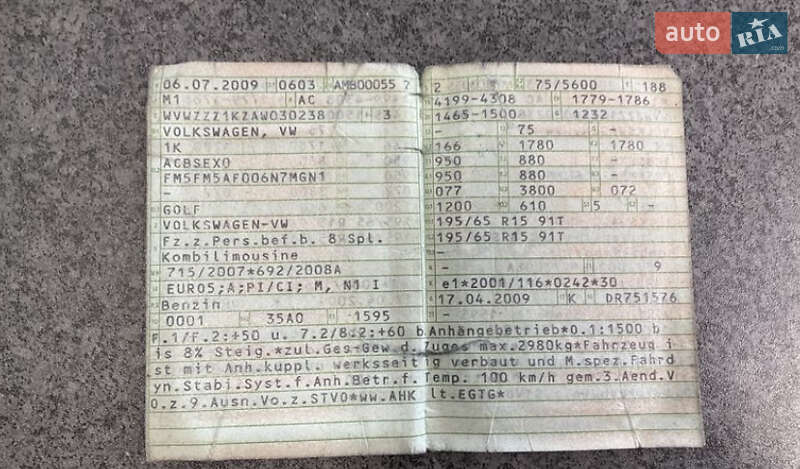 auto RIA .com
06.07.2009 0603 AMB00055 7
M1 AC
WVWZZZ1KZAW030238 3
VOLKSWAGEN, VW
1K
ACBSEX0
FM5FM5AF006N7MGN1
-
GOLF
VOLKSWAGEN-VW
Fz.z.Pers.bef.b. 8 Spl.
Kombilimousine
715/2007*692/2008A
EURO5;A;PI/CI; M, N1 I
Benzin
0001 35A0 1595
2 75/5600 188
4199-4308 1779-1786
1465-1500 1232
- 75 -
166 1780 1780
950 880 -
950 880 -
077 3800 072
1200 610 5 -
195/65 R15 91T
195/65 R15 91T
-
- 9
e1*2001/116*0242*30
17.04.2009 K DR751576
F.1/F.2:+50 u. 7.2/8.2:+60 b.Anhängebetrieb*O.1:1500 b
is 8% Steig.*zul.Ges-Gew.d.Zuges max.2980kg*Fahrzeug i
st mit Anh.kuppl. werksseitig verbaut und M.spez.Fahrd
yn.Stabi.Syst.f.Anh.Betr.f.Temp. 100 km/h gem.3.Aend.V
O.z.9.Ausn.Vo.z.STVO*ww.AHK lt.EGTG*